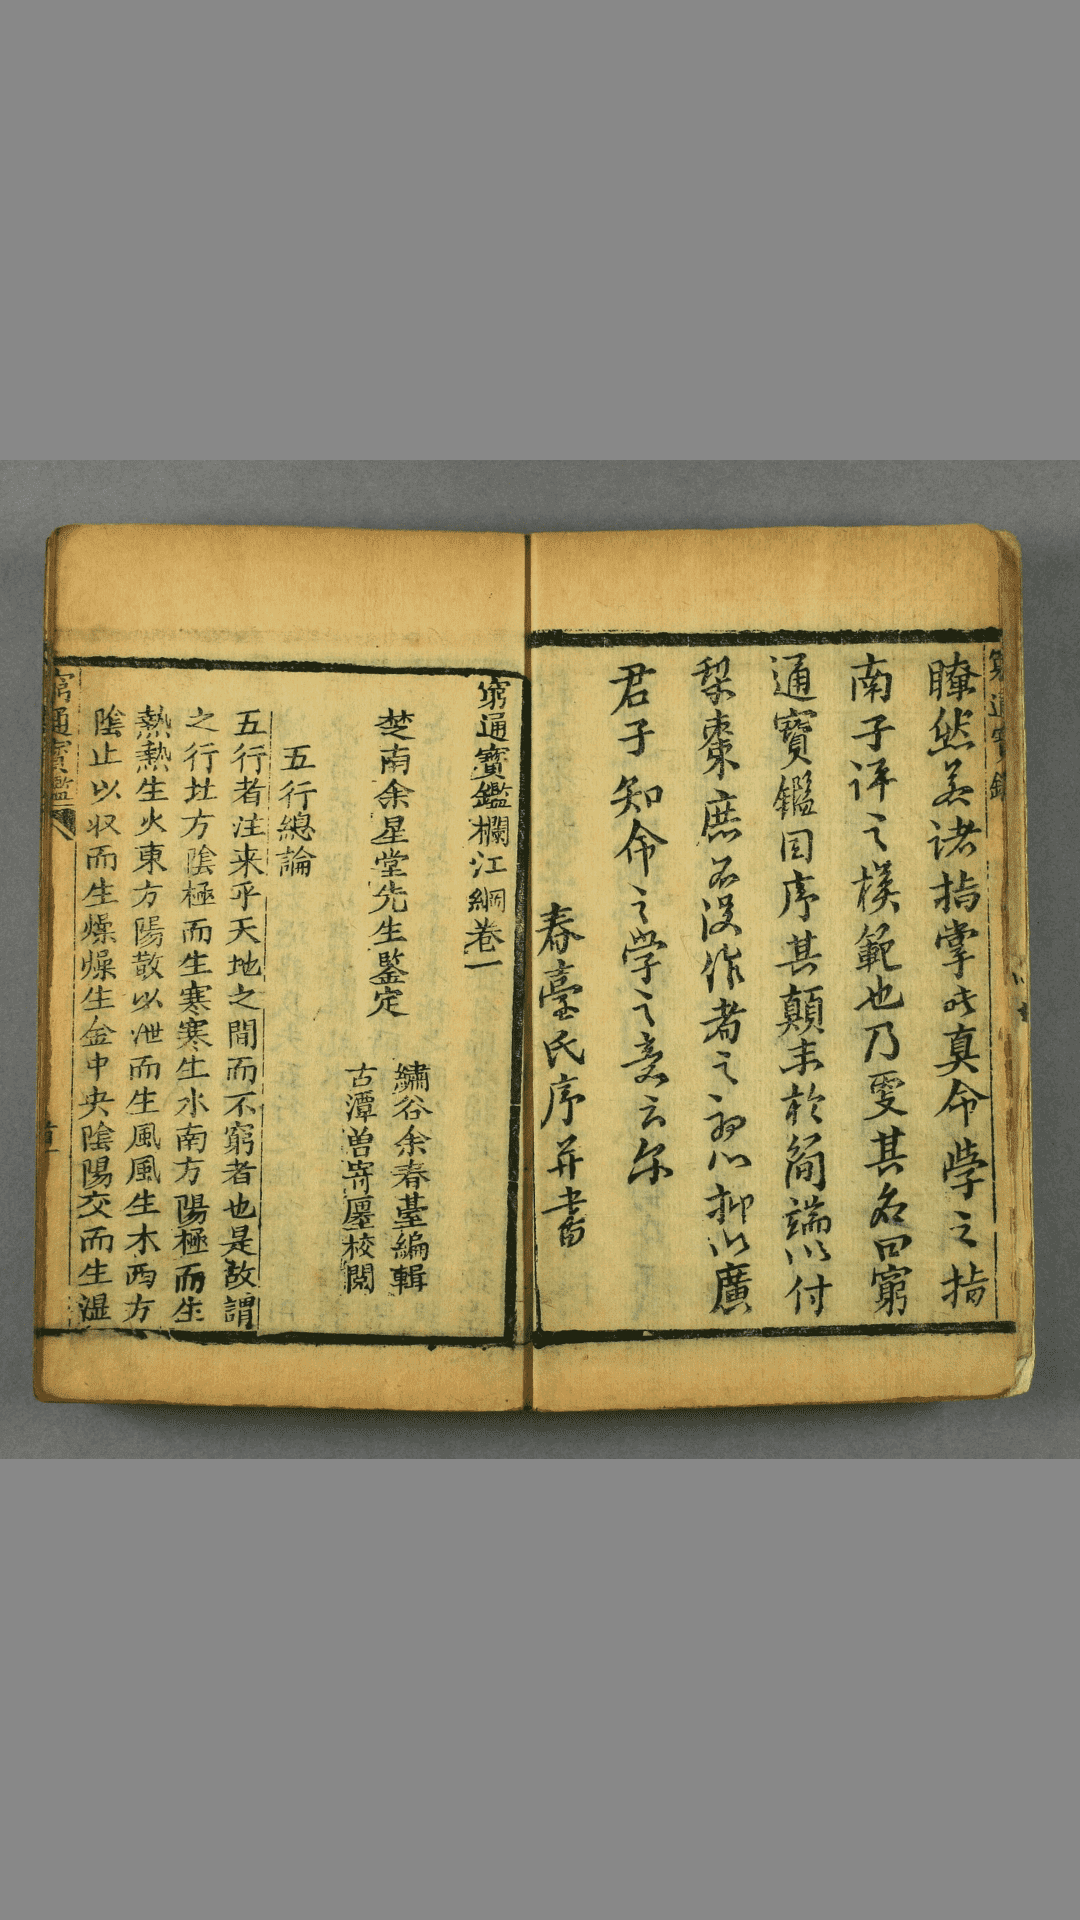 窮通寶鑑
瞭然若諸指掌此真命學之指
南子評之模範也乃更其名曰窮
通寶鑑因序其顛末於簡端以付
梨棗庶不没作者之初心抑以廣
君子知命之學之意云尔
春臺氏序并書
窮通寶鑑欄江綱卷一
楚南余星堂先生鑒定
繡谷余春臺編輯
古潭曽寄廛校閲
五行總論
五行者注来乎天地之間而不窮者也是故謂
之行北方陰極而生寒寒生水南方陽極而生
熱熱生火東方陽散以泄而生風風生木西方
陰止以収而生燥燥生金中央陰陽交而生湿
窮通寶鑑